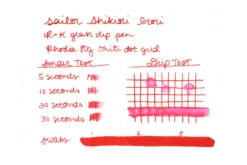 Sailor Shikiori Irori
J-K glass dip pen
Rhodia Pg dot grid
Smear Test
Drip Test
5 seconds
10 seconds
20 seconds
30 seconds
Swabs